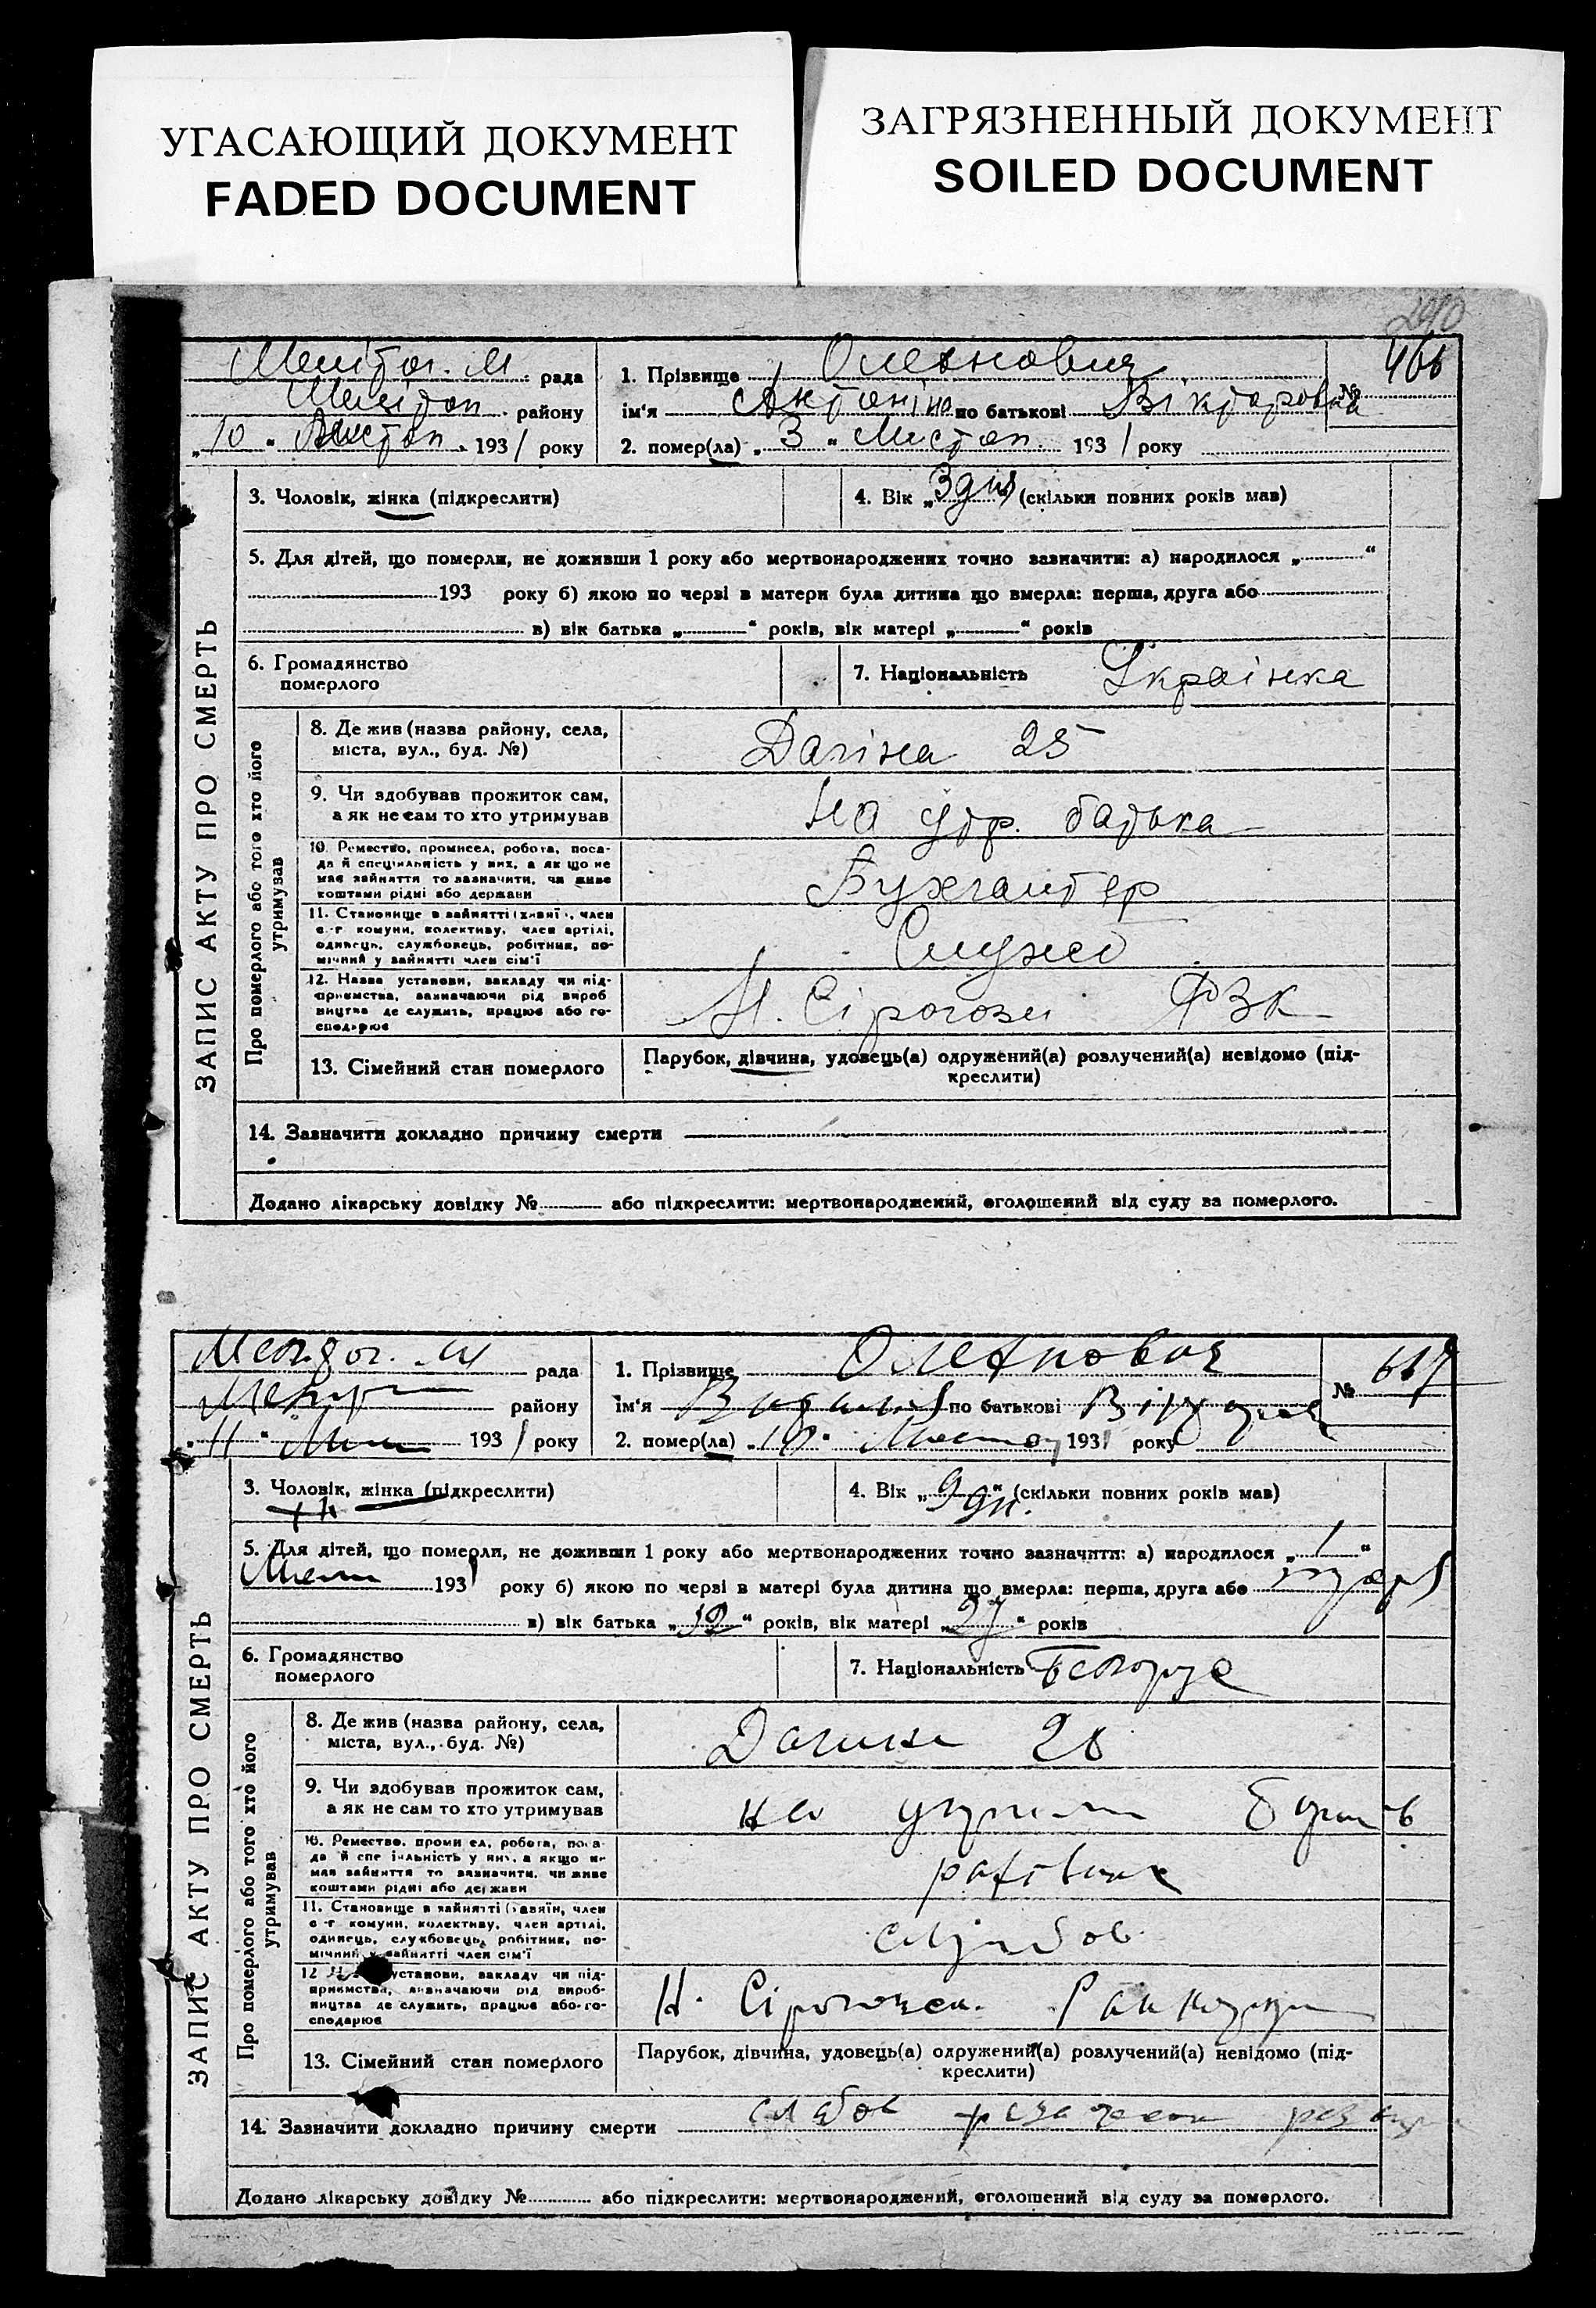 УГАСАЮЩИЙ ДОКУМЕНТ
FADED DOCUMENT
ЗАГРЯЗНЕННЫЙ ДОКУМЕНТ
SOILED DOCUMENT
290
Мелітоп. М. рада
району
„10 " Листоп. 1931 року
1. Прізвище Олехнович
№ 466
ім'я Антоніна по батькові Вікторовна
2. помер(ла) „3 " Листоп. 1931 року
ЗАПИС АКТУ ПРО СМЕРТЬ
3. Чоловік, жінка (підкреслити)
4. Вік „3 дня" (скільки повних років мав)
5. Для дітей, що померли, не доживши 1 року або мертвонароджених точно зазначити: а) народилося „ "
193 року б) якою по черзі в матери була дитина що вмерла: перша, друга або
в) вік батька „ " років, вік матері „ " років
6. Громадянство
померлого
7. Національність Українка
Про померлого або того хто його
утримував
8. Де жив (назва району, села,
міста, вул., буд. №)
25
9. Чи здобував прожиток сам,
а як не сам то хто утримував
На утр. батька
10. Ремество, промисел, робота, поса-
да й спеціяльність у них, а як що не
мав зайняття то зазначити, чи живе
коштами рідні або держави
Бухгалтер
11. Становище в зайнятті (хазяї, член
с.-г комуни, колективу, член артілі,
одинець, службовець, робітник, по-
мічний у зайнятті член сім'ї
Служб
12. Назва установи, закладу чи під-
приємства, зазначаючи рід вироб
ництва де служить, працює або го-
сподарює
Н. Сірогози
13. Сімейний стан померлого
Парубок, дівчина, удовець(а) одружений(а) розлучений(а) невідомо (під-
креслити)
14. Зазначити докладно причину смерти
Додано лікарську довідку № або підкреслити: мертвонароджений, оголошений від суду за померлого.
рада
району
„11 " 1931 року
1. Прізвище Олехнович
№
ім'я по батькові
2. помер(ла) „10" 1931 року
ЗАПИС АКТУ ПРО СМЕРТЬ
3. Чоловік, жінка (підкреслити)
4. Вік „9 дн." (скільки повних років мав)
5. Для дітей, що померли, не доживши 1 року або мертвонароджених точно зазначити: а) народилося „1"
1931 року б) якою по черзі в матері була дитина що вмерла: перша, друга або
в) вік батька „ " років, вік матері „27" років
6. Громадянство
померлого
7. Національність Білорус
Про померлого або того хто його
утримував
8. Де жив (назва району, села,
міста, вул., буд. №)
9. Чи здобував прожиток сам,
а як не сам то хто утримував
на утриман
10. Ремество, промисел, робота, поса-
да й спеціяльність у них, а якщо не
мав зайняття то зазначити, чи живе
коштами рідні або держави
11. Становище в зайнятті (хазяїн, член
с-г комуни, колективу, член артілі,
одинець, службовець, робітник, по-
мічний у зайнятті член сім'ї
службов.
12 установи, закладу чи під-
приємства, зазначаючи рід вироб-
ництва де служить, працює або го-
сподарює
Н. Сірогозск.
13. Сімейний стан померлого
Парубок, дівчина, удовець(а) одружений(а) розлучений(а) невідомо (під-
креслити)
14. Зазначити докладно причину смерти
Додано лікарську довідку № або підкреслити: мертвонароджений, оголошений від суду за померлого.